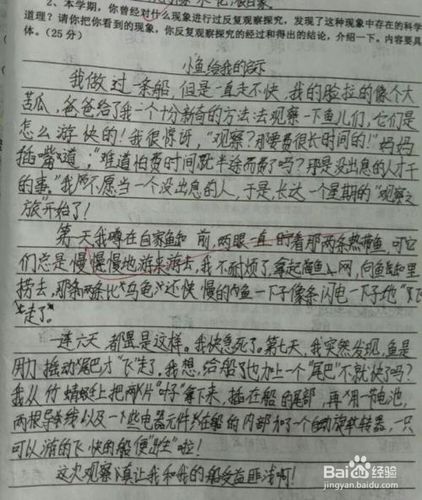 2、本学期,你曾经对什么现象进行过反复观察探究,发现了这种现象中存在的科学
道理?请你把你看到的现象,你反复观察探究的经过和得出的结论,介绍一下。内容要具
体。(25分)
小鱼给我的启示
我做过一条船,但是一直走不快,我的脸拉的像个大
苦瓜,爸爸给了我一个十分新奇的方法:去观察一下鱼儿们,它们是
怎么游快的!我很惊讶,“观察?那要费很长时间的!”妈妈
插嘴道:“难道怕费时间就半途而费了吗?那是没出息的人才干
的事。”我不愿当一个没出息的人,于是,长达一个星期的“观察之
旅”开始了!
第一天我蹲在自家鱼缸前,两眼一直盯着那两条热带鱼,可它
们总是慢慢慢地游来游去,我不耐烦了,拿起鱼网,向鱼缸里
捞去,那条两条比“乌龟”还慢的鱼一下子像条闪电一下子地“飞
”走了。
一连六天都是这样。我快急死了。第七天,我突然发现,鱼是
用力摇动尾巴才“飞”走了,我想,给船了也加上一个“尾巴”不就快了吗?
我从竹蜻蜓上把两片“叶子”拿下来,插在船的尾部,再用一节电池,
两根导线以及一些电器元件在船的内部加了一个自动旋转器,一只
可以游的飞快的船便“出生”啦!
这次观察真让我和我的船受益匪浅啊!
Bai 百度经验
jingyan.baidu.com